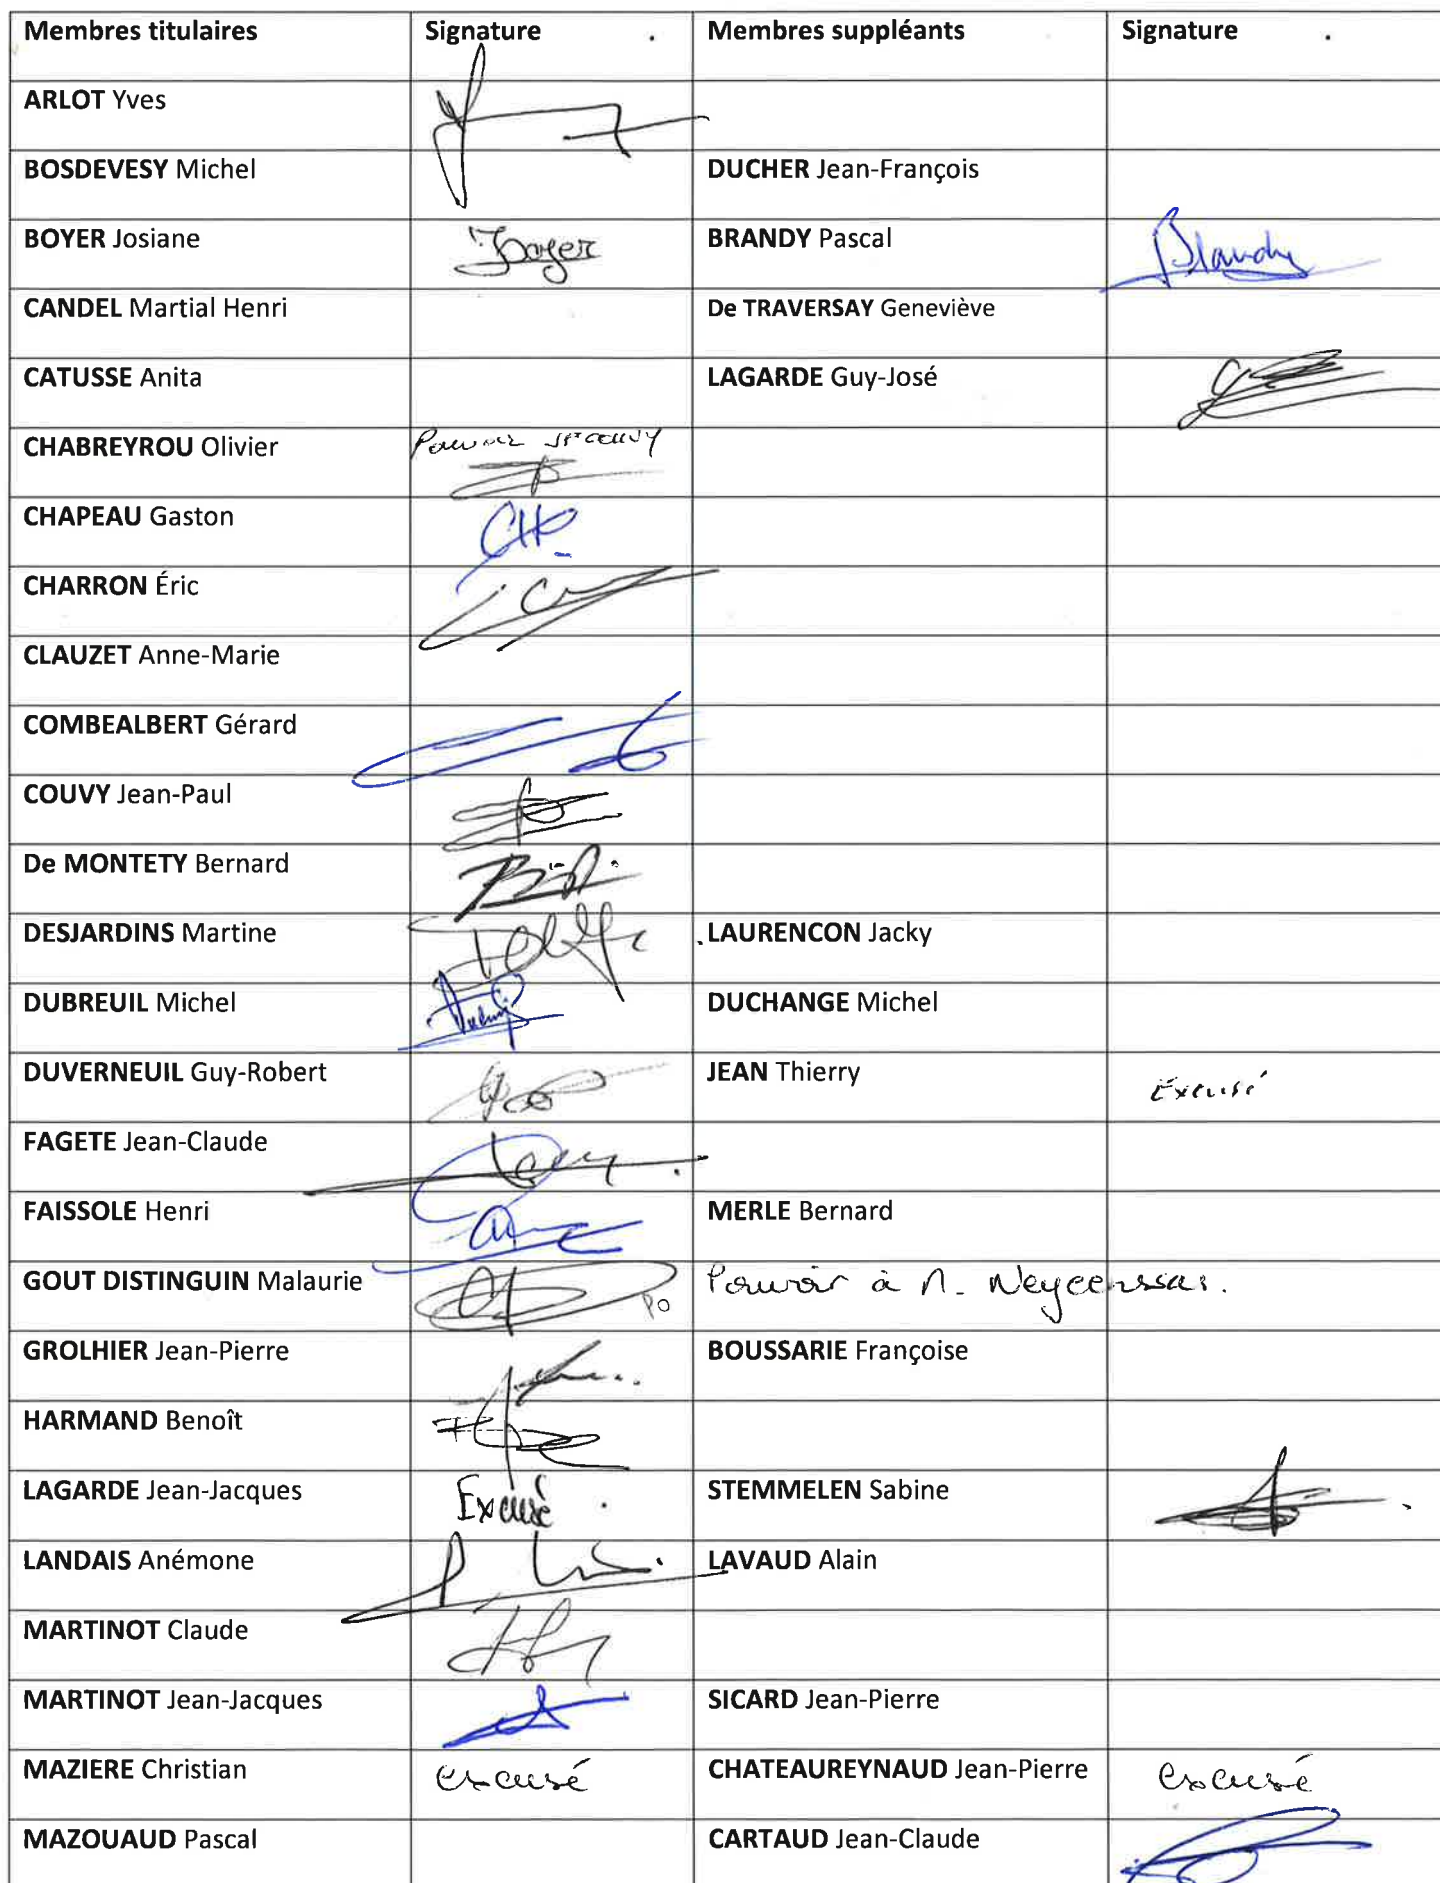 Membres titulaires Signature Membres suppléants Signature
ARLOT Yves
BOSDEVESY Michel DUCHER Jean-François
BOYER Josiane Boyer BRANDY Pascal
CANDEL Martial Henri De TRAVERSAY Geneviève
CATUSSE Anita LAGARDE Guy-José
CHABREYROU Olivier Pouvoir
CHAPEAU Gaston
CHARRON Éric
CLAUZET Anne-Marie
COMBEALBERT Gérard
COUVY Jean-Paul
De MONTETY Bernard
DESJARDINS Martine LAURENCON Jacky
DUBREUIL Michel DUCHANGE Michel
DUVERNEUIL Guy-Robert JEAN Thierry Excusé
FAGETE Jean-Claude
FAISSOLE Henri MERLE Bernard
GOUT DISTINGUIN Malaurie PO Pouvoir à M.
GROLHIER Jean-Pierre BOUSSARIE Françoise
HARMAND Benoît
LAGARDE Jean-Jacques Excusé STEMMELEN Sabine
LANDAIS Anémone LAVAUD Alain
MARTINOT Claude
MARTINOT Jean-Jacques SICARD Jean-Pierre
MAZIERE Christian excusé CHATEAUREYNAUD Jean-Pierre excusé
MAZOUAUD Pascal CARTAUD Jean-Claude